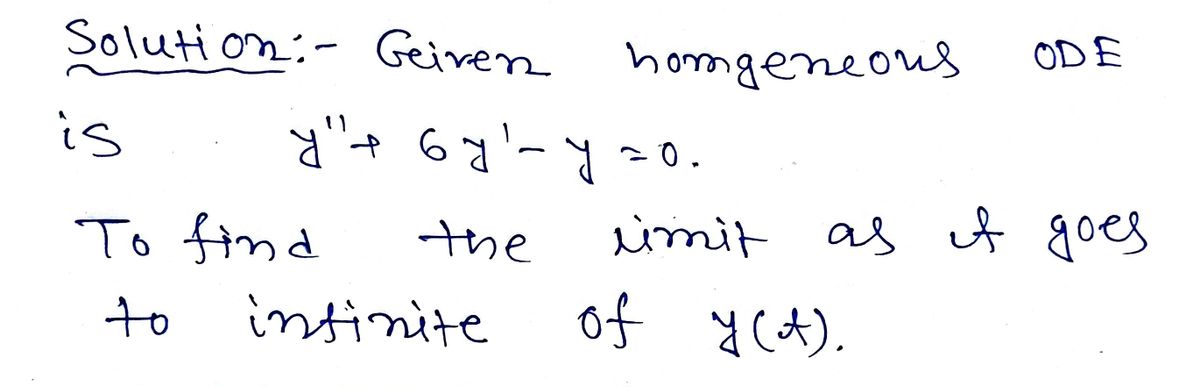 Solution:- Geiven homgeneous ODE
is y''+ 6y'- y = 0.
To find the limit as t goes
to infinite of y(t).